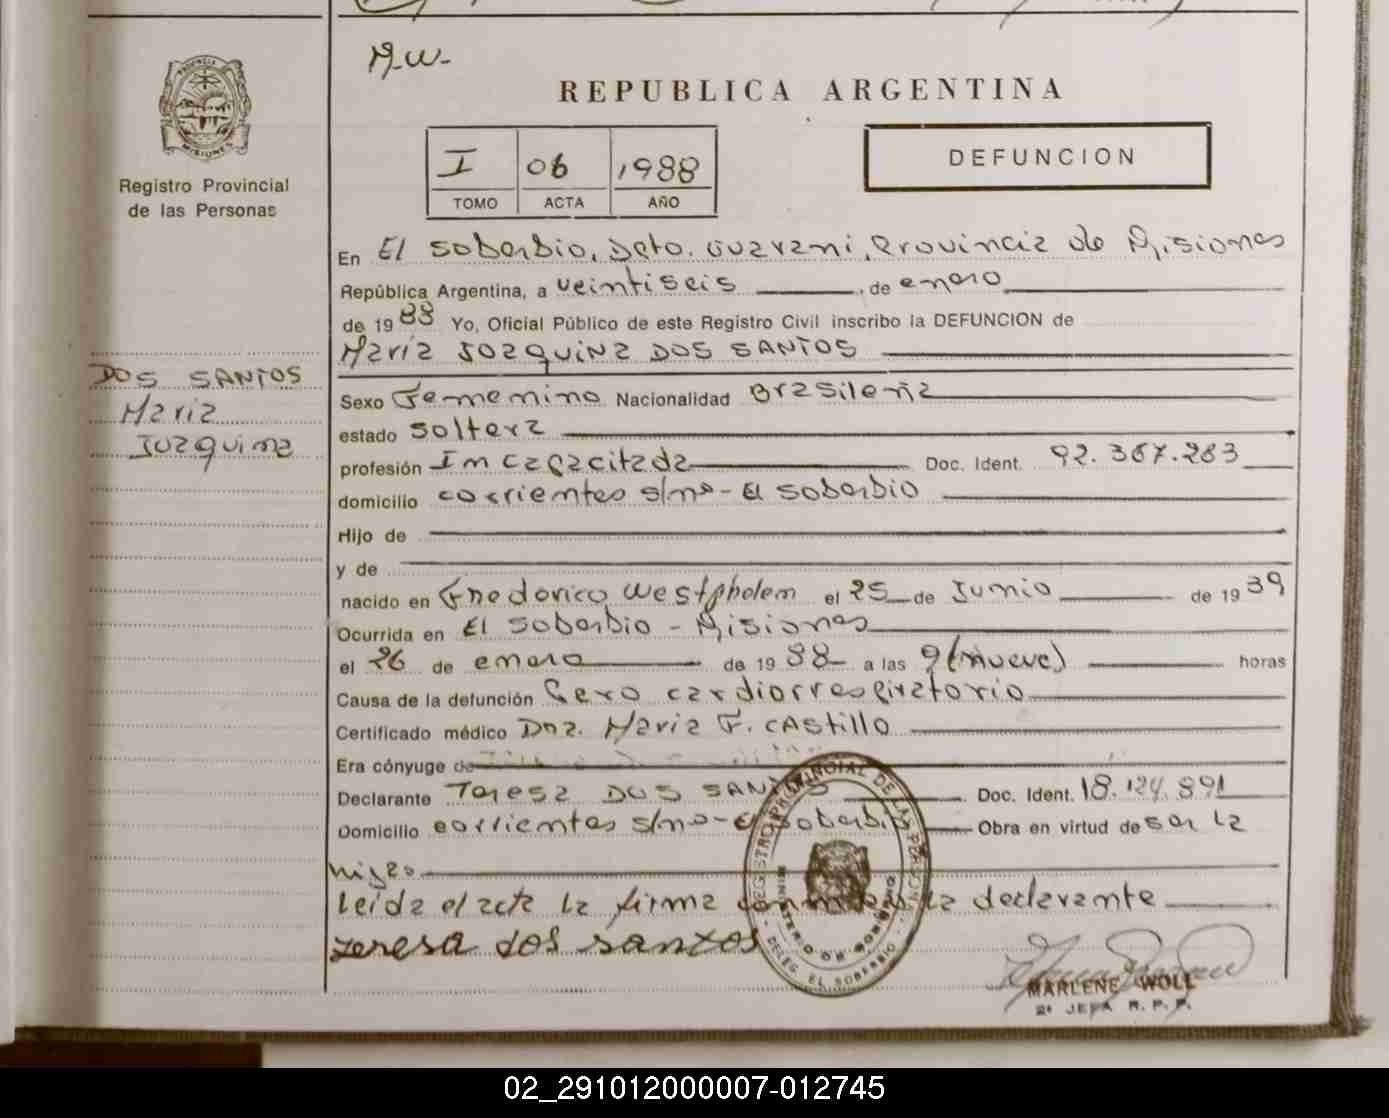 M.W.
REPUBLICA ARGENTINA
PROVINCIA
MISIONES
Registro Provincial
de las Personas
I 06 1988
TOMO ACTA AÑO
DEFUNCION
En El Soberbio, Dto. Guarani, Provincia de Misiones
República Argentina, a veintiseis de enero
de 1988 Yo, Oficial Público de este Registro Civil inscribo la DEFUNCION de
Maria JOAQUINA DOS SANTOS
DOS SANTOS
Maria
Juaquina
Sexo Femenino Nacionalidad Brasileña
estado soltera
profesión Incapacitada Doc. Ident. 92.367.283
domicilio corrientes s/nº - El Soberbio
Hijo de
y de
nacido en Frederico Westpholem el 25 de Junio de 1939
Ocurrida en El Soberbio - Misiones
el 26 de enero de 1988 a las 9 (nueve) horas
Causa de la defunción Paro cardiorrespiratorio
Certificado médico Dra. Maria F. CAstillo
Era cónyuge de
Declarante Teresa DOS SANTOS Doc. Ident. 18.124.891
Domicilio corrientes s/nº - El Soberbio Obra en virtud de ser la
hija
Leida el acta la firma conmigo la declarante
Teresa dos santos
REGISTRO PROVINCIAL DE LAS PERSONAS
MINISTERIO DE GOBIERNO
DELEG. EL SOBERBIO
MARLENE WOLL
2ª JEFA R. P. P.
02_291012000007-012745